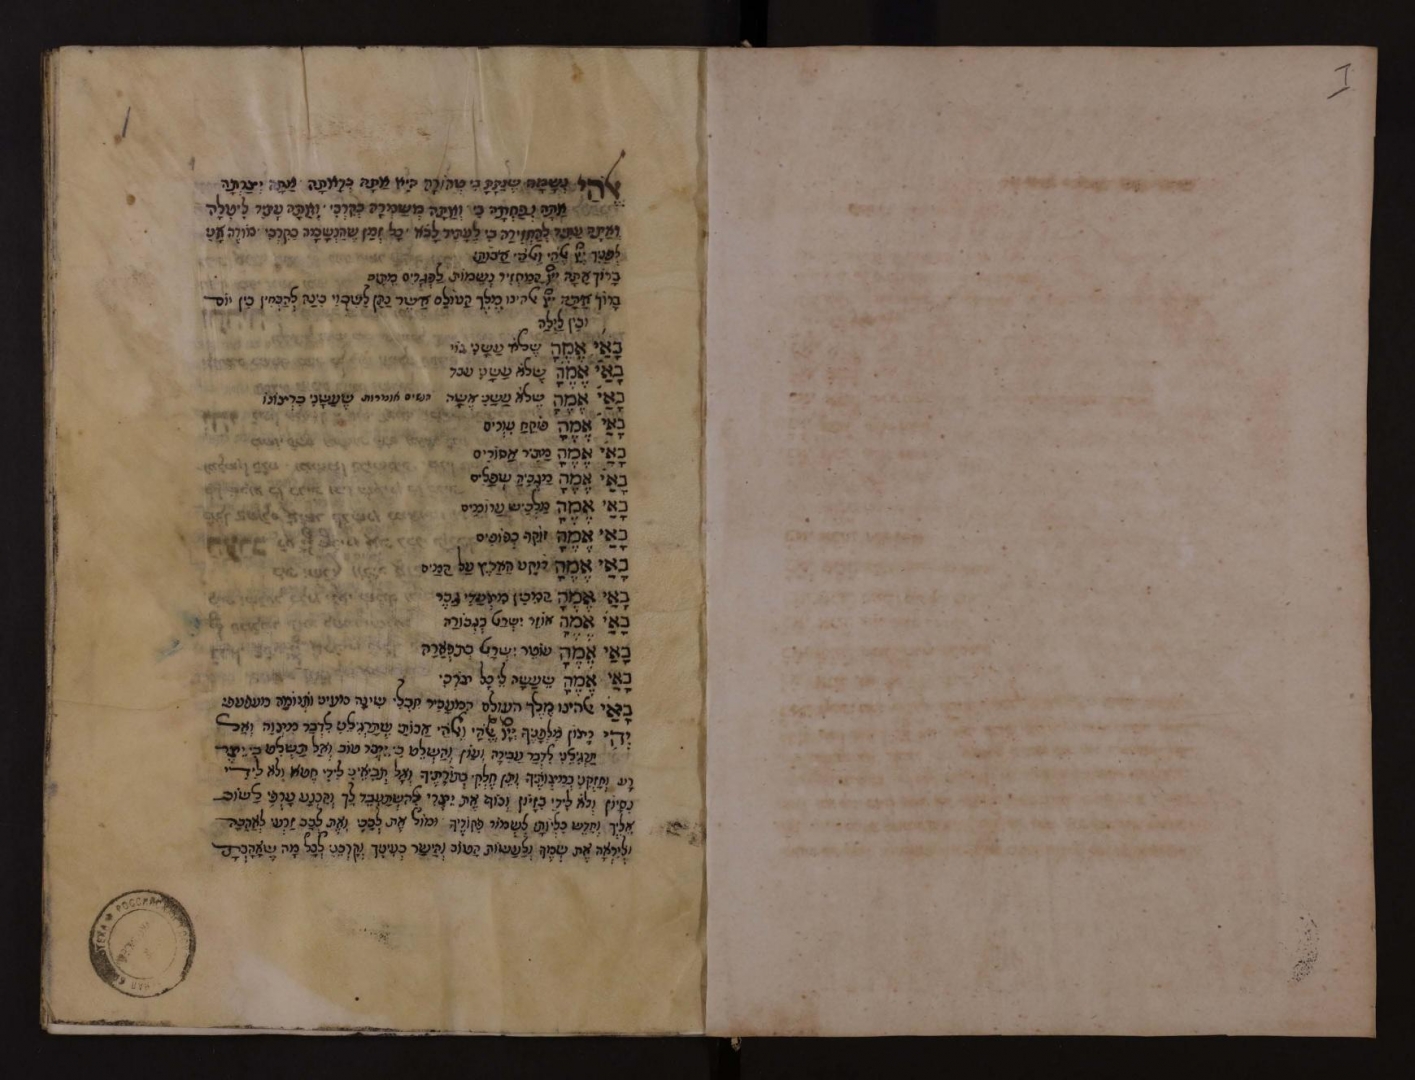 אלהי נשמה שנתת בי טהורה היא אתה בראתה אתה יצרתה
אתה נפחתה בי ואתה משמרה בקרבי ואתה עתיד ליטלה
ואתה עתיד להחזירה בי לעתיד לבא כל זמן שהנשמה בקרבי מודה אני
לפניך ייי אלהי ואלהי אבותי
ברוך אתה ייי המחזיר נשמות לפגרים מתים
ברוך אתה ייי אלהינו מלך העולם אשר נתן לשכוי בינה להבחין בין יום
ובין לילה
באי אמה שלא עשני גוי
באי אמה שלא עשני עבד
באי אמה שלא עשני אשה הנשים אומרות שעשני כרצונו
באי אמה פוקח עורים
באי אמה מתיר אסורים
באי אמה מגביה שפלים
באי אמה מלביש ערומים
באי אמה זוקף כפופים
באי אמה רוקע הארץ על המים
באי אמה המכין מצעדי גבר
באי אמה אוזר ישראל בגבורה
באי אמה עוטר ישראל בתפארה
באי אמה שעשה לי כל צרכי
באי אלהינו מלך העולם המעביר חבלי שינה מעיני ותנומה מעפעפי
ויהי רצון מלפניך ייי אלהי ואלהי אבותי שתרגילני לדבר מצוה ואל
תרגילני לדבר עבירה ועון והשלט בי יצר טוב ואל תשלט בי יצר
רע וחזקני במצותיך ותן חלקי בתורתיך ואל תביאני לידי חטא ולא לידי
נסיון ולא לידי בזיון וכוף את יצרי להשתעבד לך והכנע ערפי לשוב
אליך וחדש כליותי לשמור פקודיך ומול את לבבי ואת לבב זרעי לאהבה
וליראה את שמך ולעשות הטוב והישר בעיניך וקרבני לכל מה שאהבת